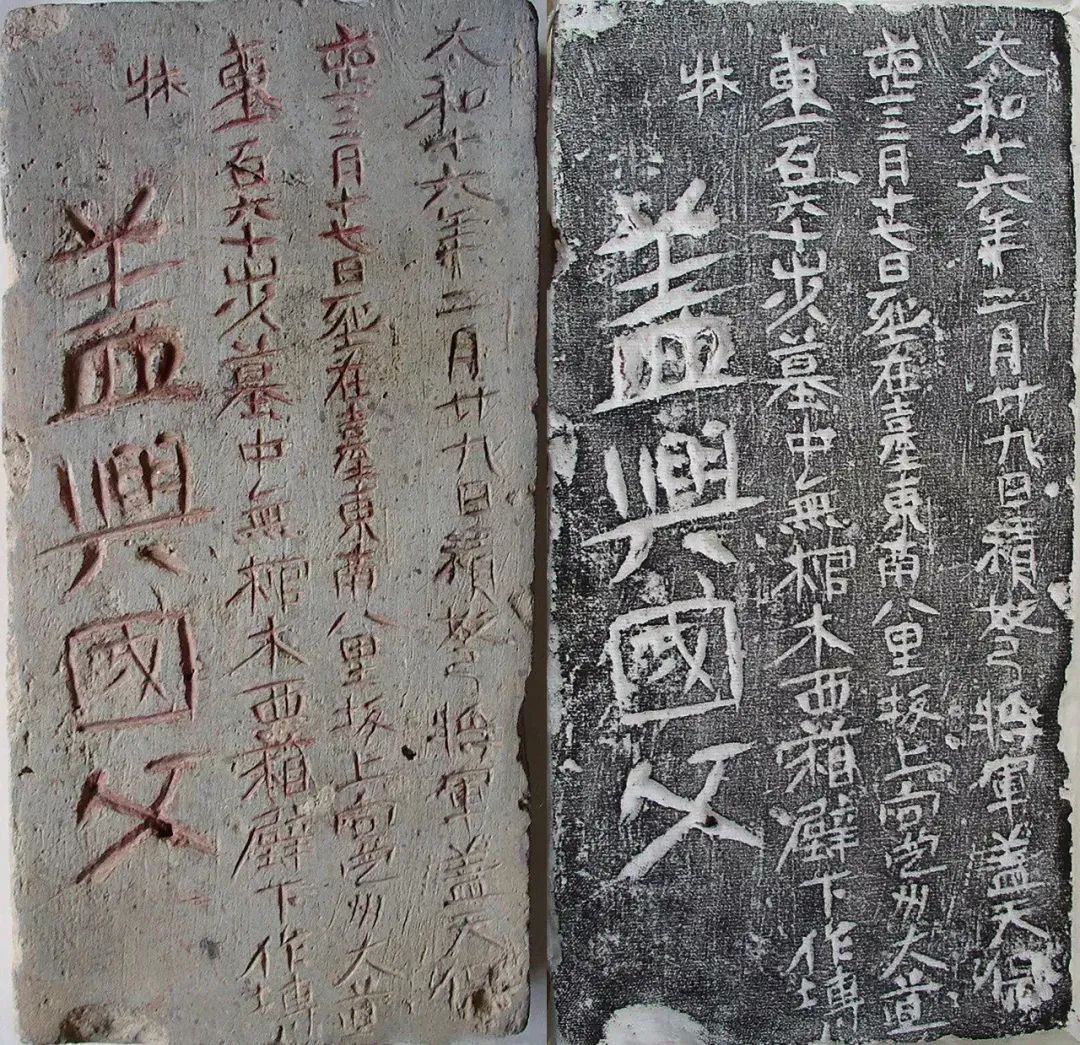 太和十六年二月廿九日積弩將軍蓋天保
喪三月十七日葬在臺東南八里坂上向定州大道
東一百六十步墓中無棺木西葙壁下作塼
牀
蓋興國父
太和十六年二月廿九日積弩將軍蓋天保
喪三月十七日葬在臺東南八里坂上向定州大道
東一百六十步墓中無棺木西葙壁下作塼
牀
蓋興國父